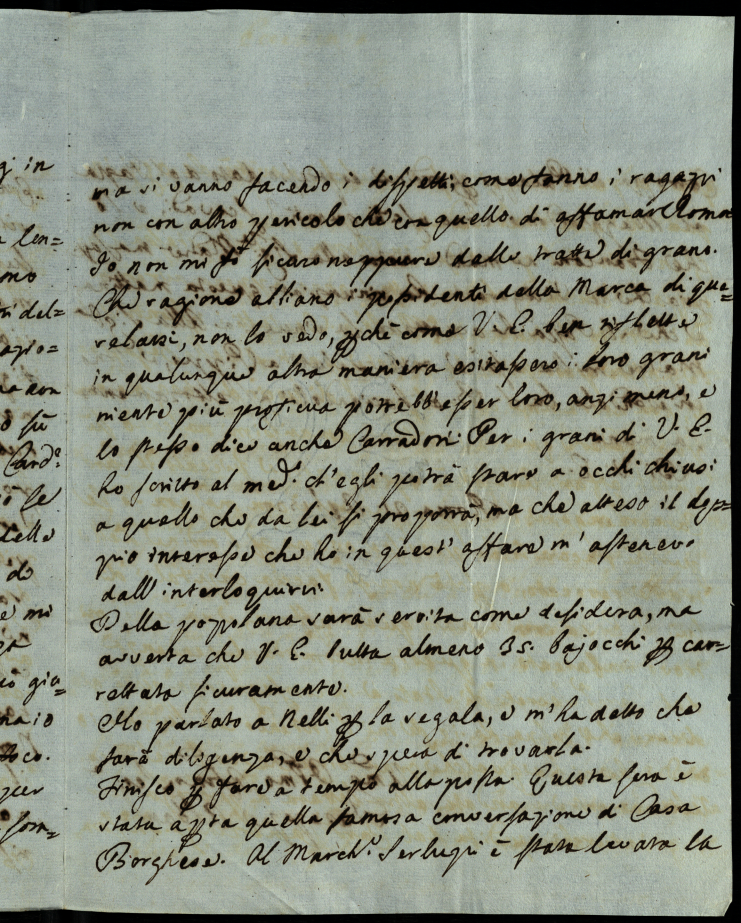 ma si vanno facendo i dispetti, come fanno i ragazzi
non con altro pericolo che con quello di affamar Roma
Io non mi fo sicuro neppure delle tratte di grano.
Che ragione abbiano i possidenti della Marca di que=
relarsi, non lo vedo, pchè come V. E. ben riflette
in qualunque altra maniera esitassero i loro grani
niente più proficua potrebb'esser loro, anzi meno, e
lo stesso dice anche Carradori. Per i grani di V. E.
ho scritto al med.o ch'egli potrà stare a occhi chiusi
a quello che da lei si proporrà, ma che atteso il dop=
pio interesse che ho in quest'affare m'astenevo
dall'interloquirvi.
Della popolana sarà servita come desidera, ma
avverta che V. E. butta almeno 35. bajocchi p car=
rettata sicuramente.
Ho parlato a Nelli p la segala, e m'ha detto che
farà diligenza, e che spera di trovarla.
Finisco p fare a tempo alla posta. Questa sera è
stata apta quella famosa conversazione di Casa
Borghese. Al March.e Serlupi è stata levata la
gi in
len=
mo
del=
agio=
non
o sù
Card.e
le
delle
di
e mi
gia=
io
oco.
per
som=